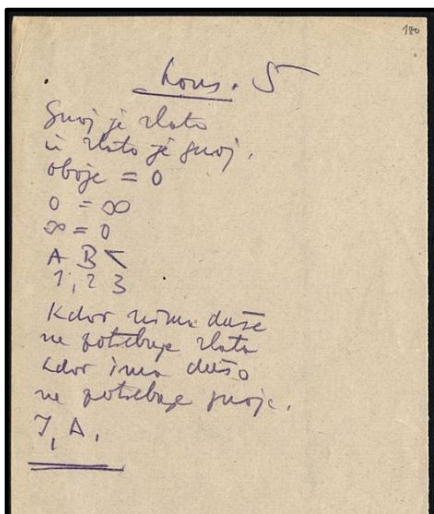 180
Kons. 5
Gnoj je zlato
in zlato je gnoj.
oboje = 0
0 = ∞
∞ = 0
A B <
1, 2 3
Kdor nima duše
ne potrebuje zlata
kdor ima dušo
ne potrebuje gnoja.
I, A.